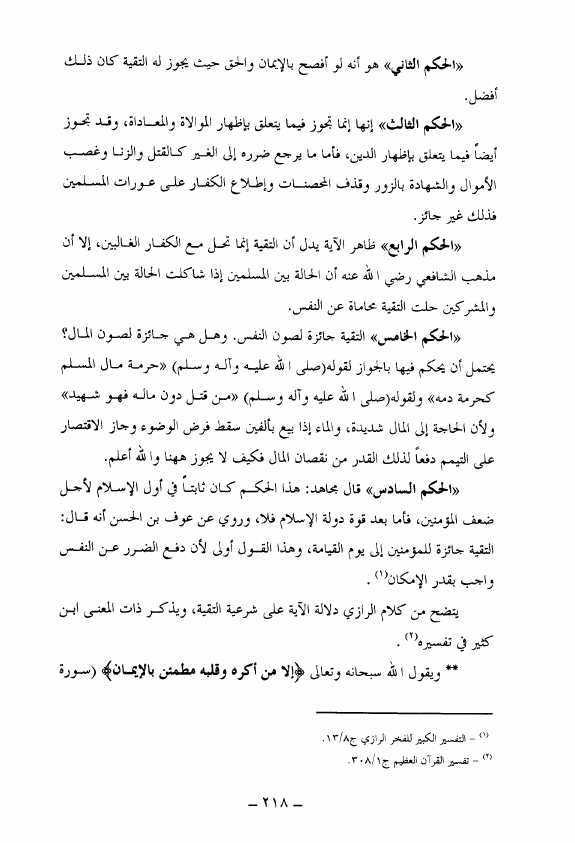 «الحكم الثاني» هو أنه لو أفصح بالإيمان والحق حيث يجوز له التقية كان ذلك
أفضل.
«الحكم الثالث» إنها إنما تجوز فيما يتعلق بإظهار الموالاة والمعاداة، وقد تجوز
أيضاً فيما يتعلق بإظهار الدين، فأما ما يرجع ضرره إلى الغير كالقتل والزنا وغصب
الأموال والشهادة بالزور وقذف المحصنات وإطلاع الكفار على عورات المسلمين
فذلك غير جائز.
«الحكم الرابع» ظاهر الآية يدل أن التقية إنما تحل مع الكفار الغالبين، إلا أن
مذهب الشافعي رضي الله عنه أن الحالة بين المسلمين إذا شاكلت الحالة بين المسلمين
والمشركين حلت التقية محاماة عن النفس.
«الحكم الخامس» التقية جائزة لصون النفس. وهل هي جائزة لصون المال؟
يحتمل أن يحكم فيها بالجواز لقوله(صلى الله عليه وآله وسلم) «حرمة مال المسلم
كحرمة دمه» ولقوله(صلى الله عليه وآله وسلم) «من قتل دون ماله فهو شهيد»
ولأن الحاجة إلى المال شديدة، والماء إذا بيع بألفين سقط فرض الوضوء وجاز الاقتصار
على التيمم دفعاً لذلك القدر من نقصان المال فكيف لا يجوز ههنا والله أعلم.
«الحكم السادس» قال مجاهد: هذا الحكم كان ثابتاً في أول الإسلام لأجل
ضعف المؤمنين، فأما بعد قوة دولة الإسلام فلا، وروي عن عوف بن الحسن أنه قال:
التقية جائزة للمؤمنين إلى يوم القيامة، وهذا القول أولى لأن دفع الضرر عن النفس
واجب بقدر الإمكان(١) .
يتضح من كلام الرازي دلالة الآية على شرعية التقية، ويذكر ذات المعنى ابن
كثير في تفسيره(٢) .
** ويقول الله سبحانه وتعالى ﴿إلا من أكره وقلبه مطمئن بالإيمان﴾ (سورة
(١) – التفسير الكبير للفخر الرازي ج١٣/٨.
(٢) – تفسير القرآن العظيم ج٣٠٨/١.
– ٢١٨ –